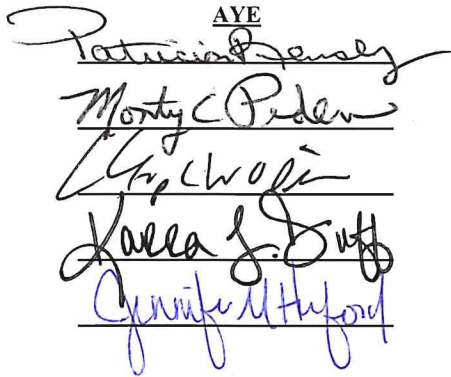 AYE
Patricia Ramsey
Monty C Peden
Karra L. Duff
Jennifer M Hufford